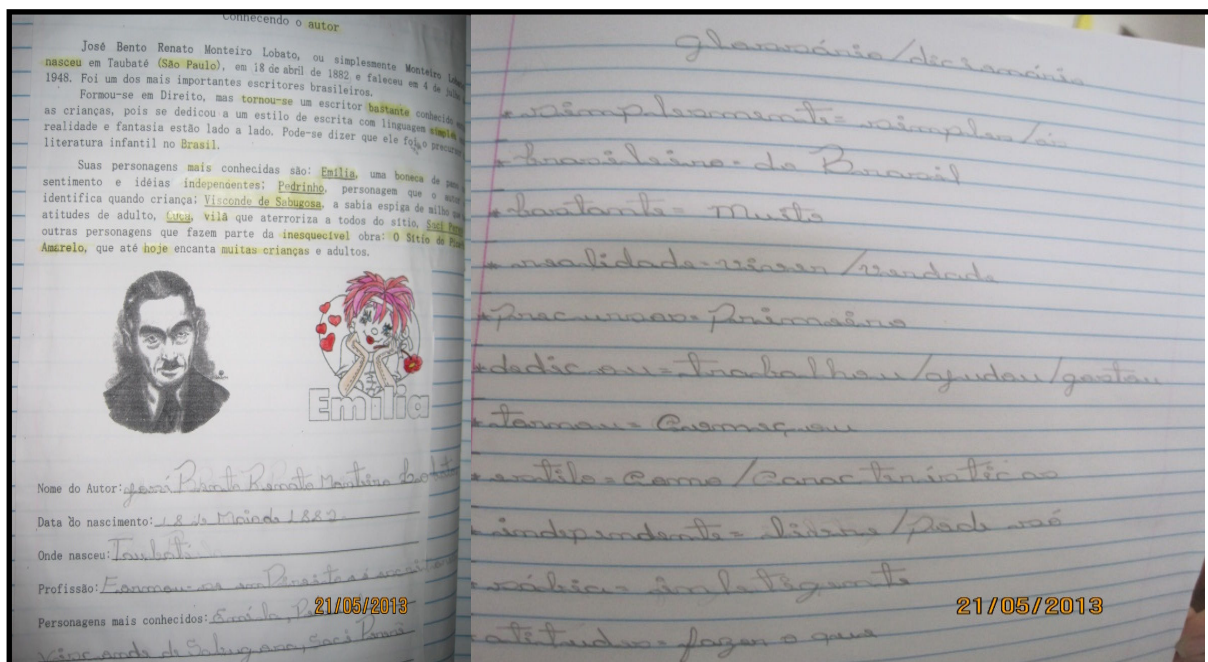 Conhecendo o autor
José Bento Renato Monteiro Lobato, ou simplesmente Monteiro
nasceu em Taubaté (São Paulo), em 18 de abril de 1882 e faleceu em 4 de
1948. Foi um dos mais importantes escritores brasileiros.
Formou-se em Direito, mas tornou-se um escritor bastante conhecido
as crianças, pois se dedicou a um estilo de escrita com linguagem simples
realidade e fantasia estão lado a lado. Pode-se dizer que ele foi o
literatura infantil no Brasil.
Suas personagens mais conhecidas são: Emília, uma boneca de
sentimento e idéias independentes; Pedrinho, personagem que o autor
identifica quando criança; Visconde de Sabugosa, a sabia espiga de milho
atitudes de adulto, Cuca, vilã que aterroriza a todos do sítio, Saci
outras personagens que fazem parte da inesquecível obra: O Sítio do
Amarelo, que até hoje encanta muitas crianças e adultos.
Emilia
Nome do Autor: José Bento Renato Monteiro Lobato
Data do nascimento: 18 de 1882
Onde nasceu: Taubaté
Profissão: Formou-se em Direito
Personagens mais conhecidos:
de Sabugosa, Saci Pererê
21/05/2013
glossário/dicionário
* simplesmente= simples/
* brasileiro= do Brasil
* bastante= muito
* realidade= viver/verdade
* precursor= primeiro
* dedicou= trabalhou/ajudou/gostou
* tornou= começou
* estilo= como/características
independente= livre/pode só
sábia= inteligente
atitudes= fazer o que
21/05/2013